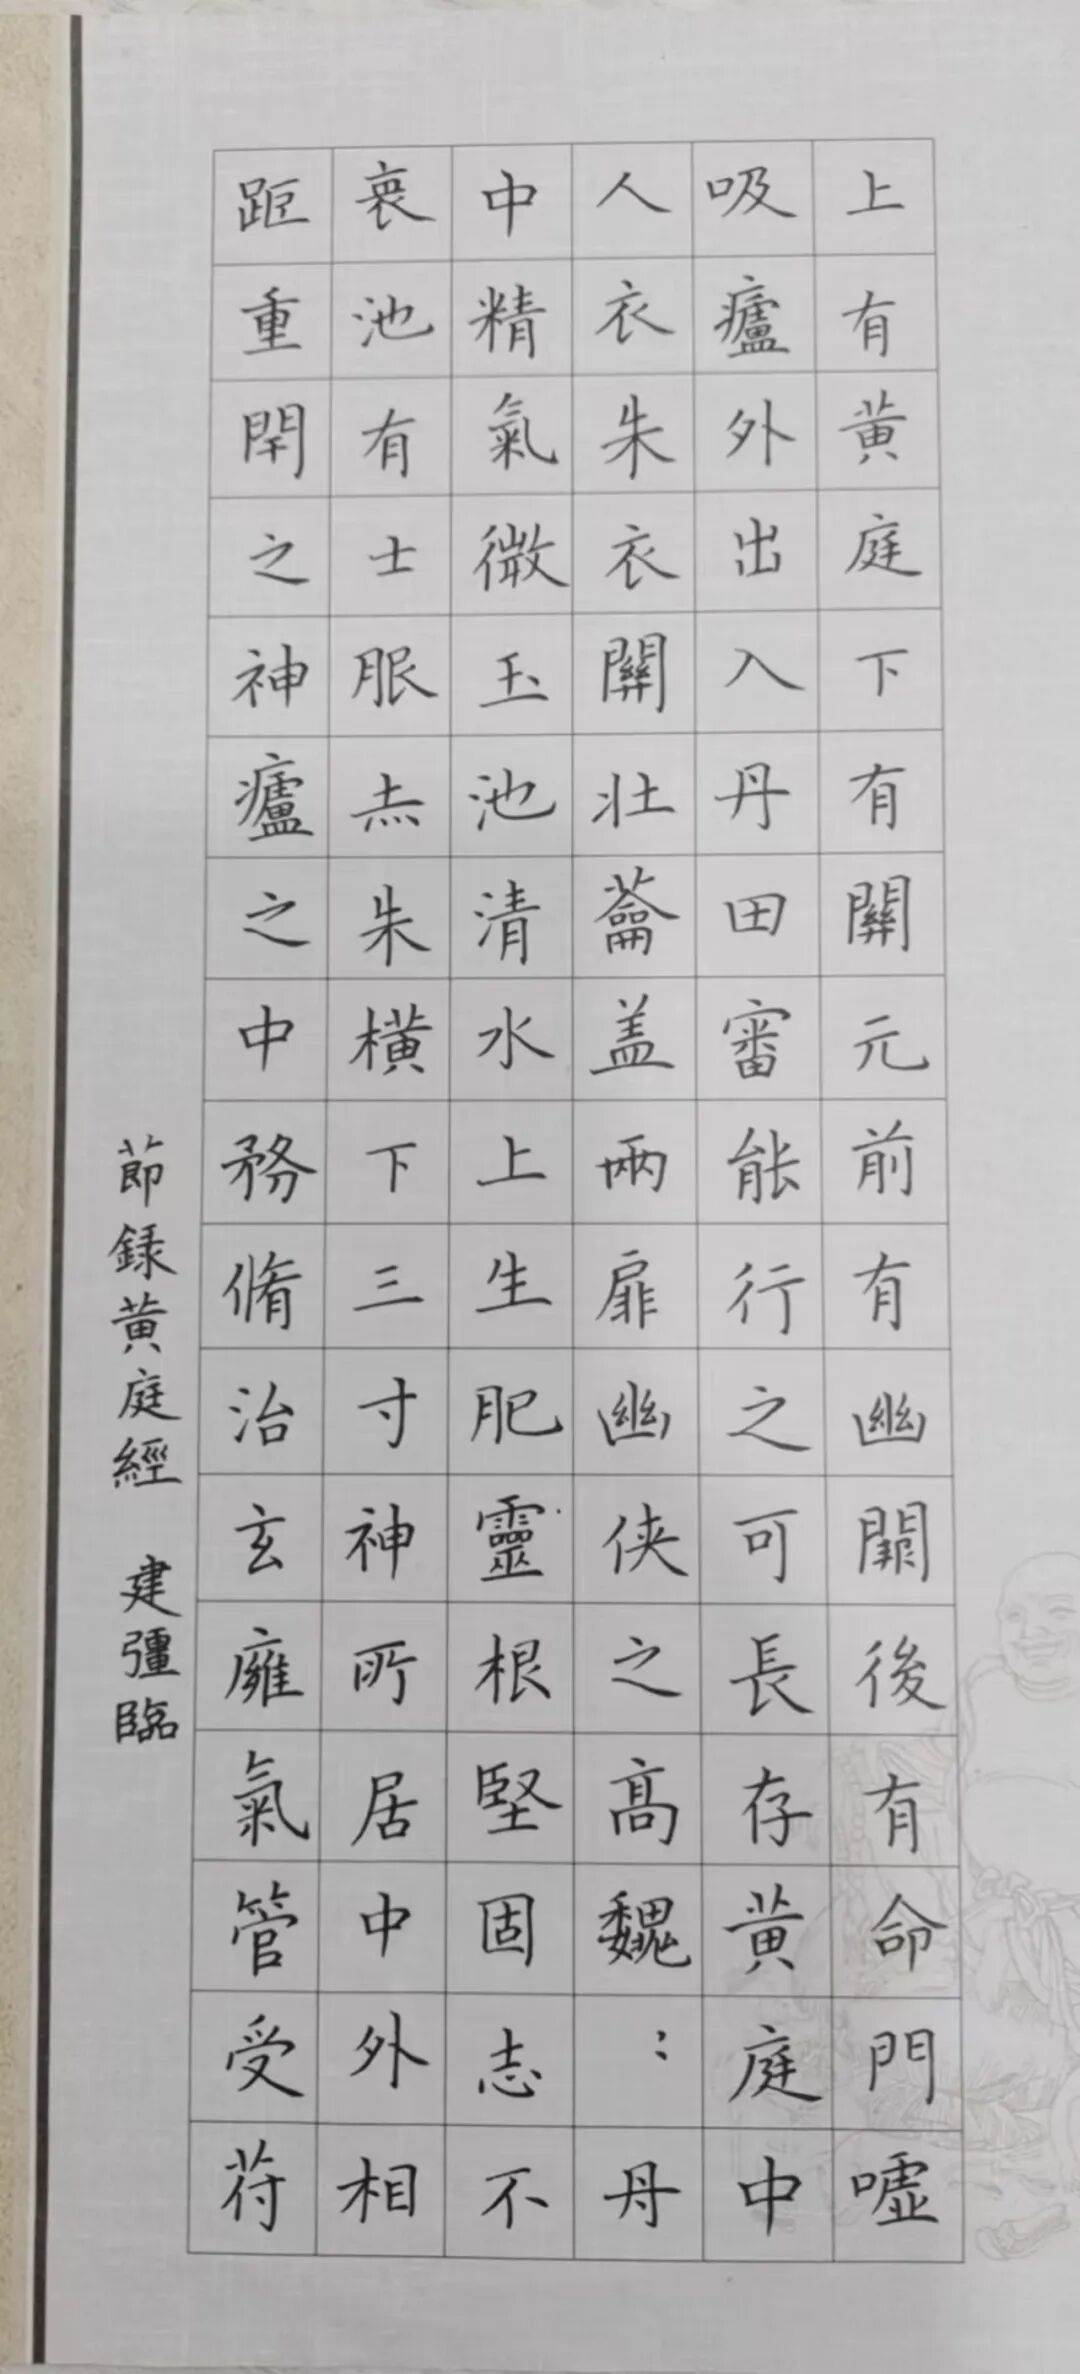 上有黄庭下有關元前有幽闕後有命門噓
吸癰外出入丹田審能行之可長存黄庭中
人衣朱衣關壯蘥盖兩扉幽俠之高魏：丹
中精氣微玉池清水上生肥靈根堅固志不
衰池有士服赤朱横下三寸神所居中外相
距重閇之神癰之中務脩治玄癰氣管受苻
莭録黄庭經 建彊臨